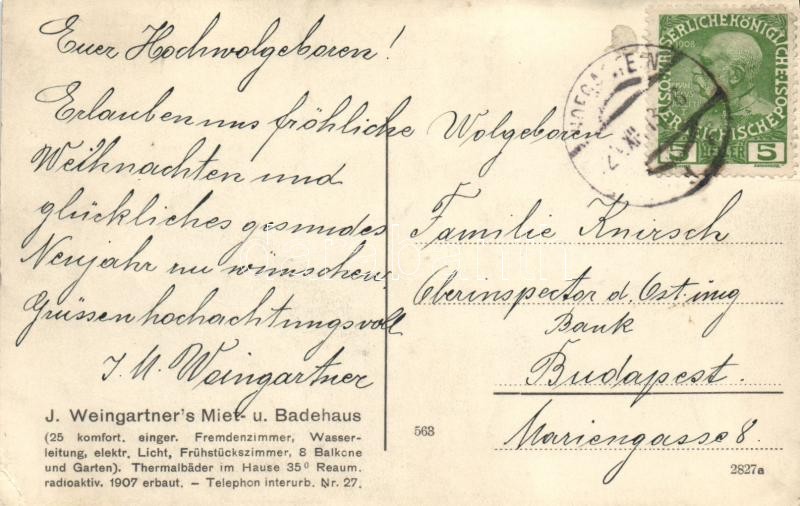 Euer Hochwolgeboren!
Erlauben uns fröhliche
Weihnachten und
glückliches gesundes
Neujahr zu wünschen.
Grüssen hochachtungsvoll
J. M. Weingartner
J. Weingartner's Miet- u. Badehaus
(25 komfort. einger. Fremdenzimmer, Wasser-
leitung, elektr. Licht, Frühstückszimmer, 8 Balkone
und Garten). Thermalbäder im Hause 35º Reaum.
radioaktiv. 1907 erbaut. – Telephon interurb. Nr. 27.
563
Wolgeboren
Familie Knirsch
Oberinspector d. Öst. ung
Bank
Budapest.
Mariengasse 8.
2827a
1908
5 5